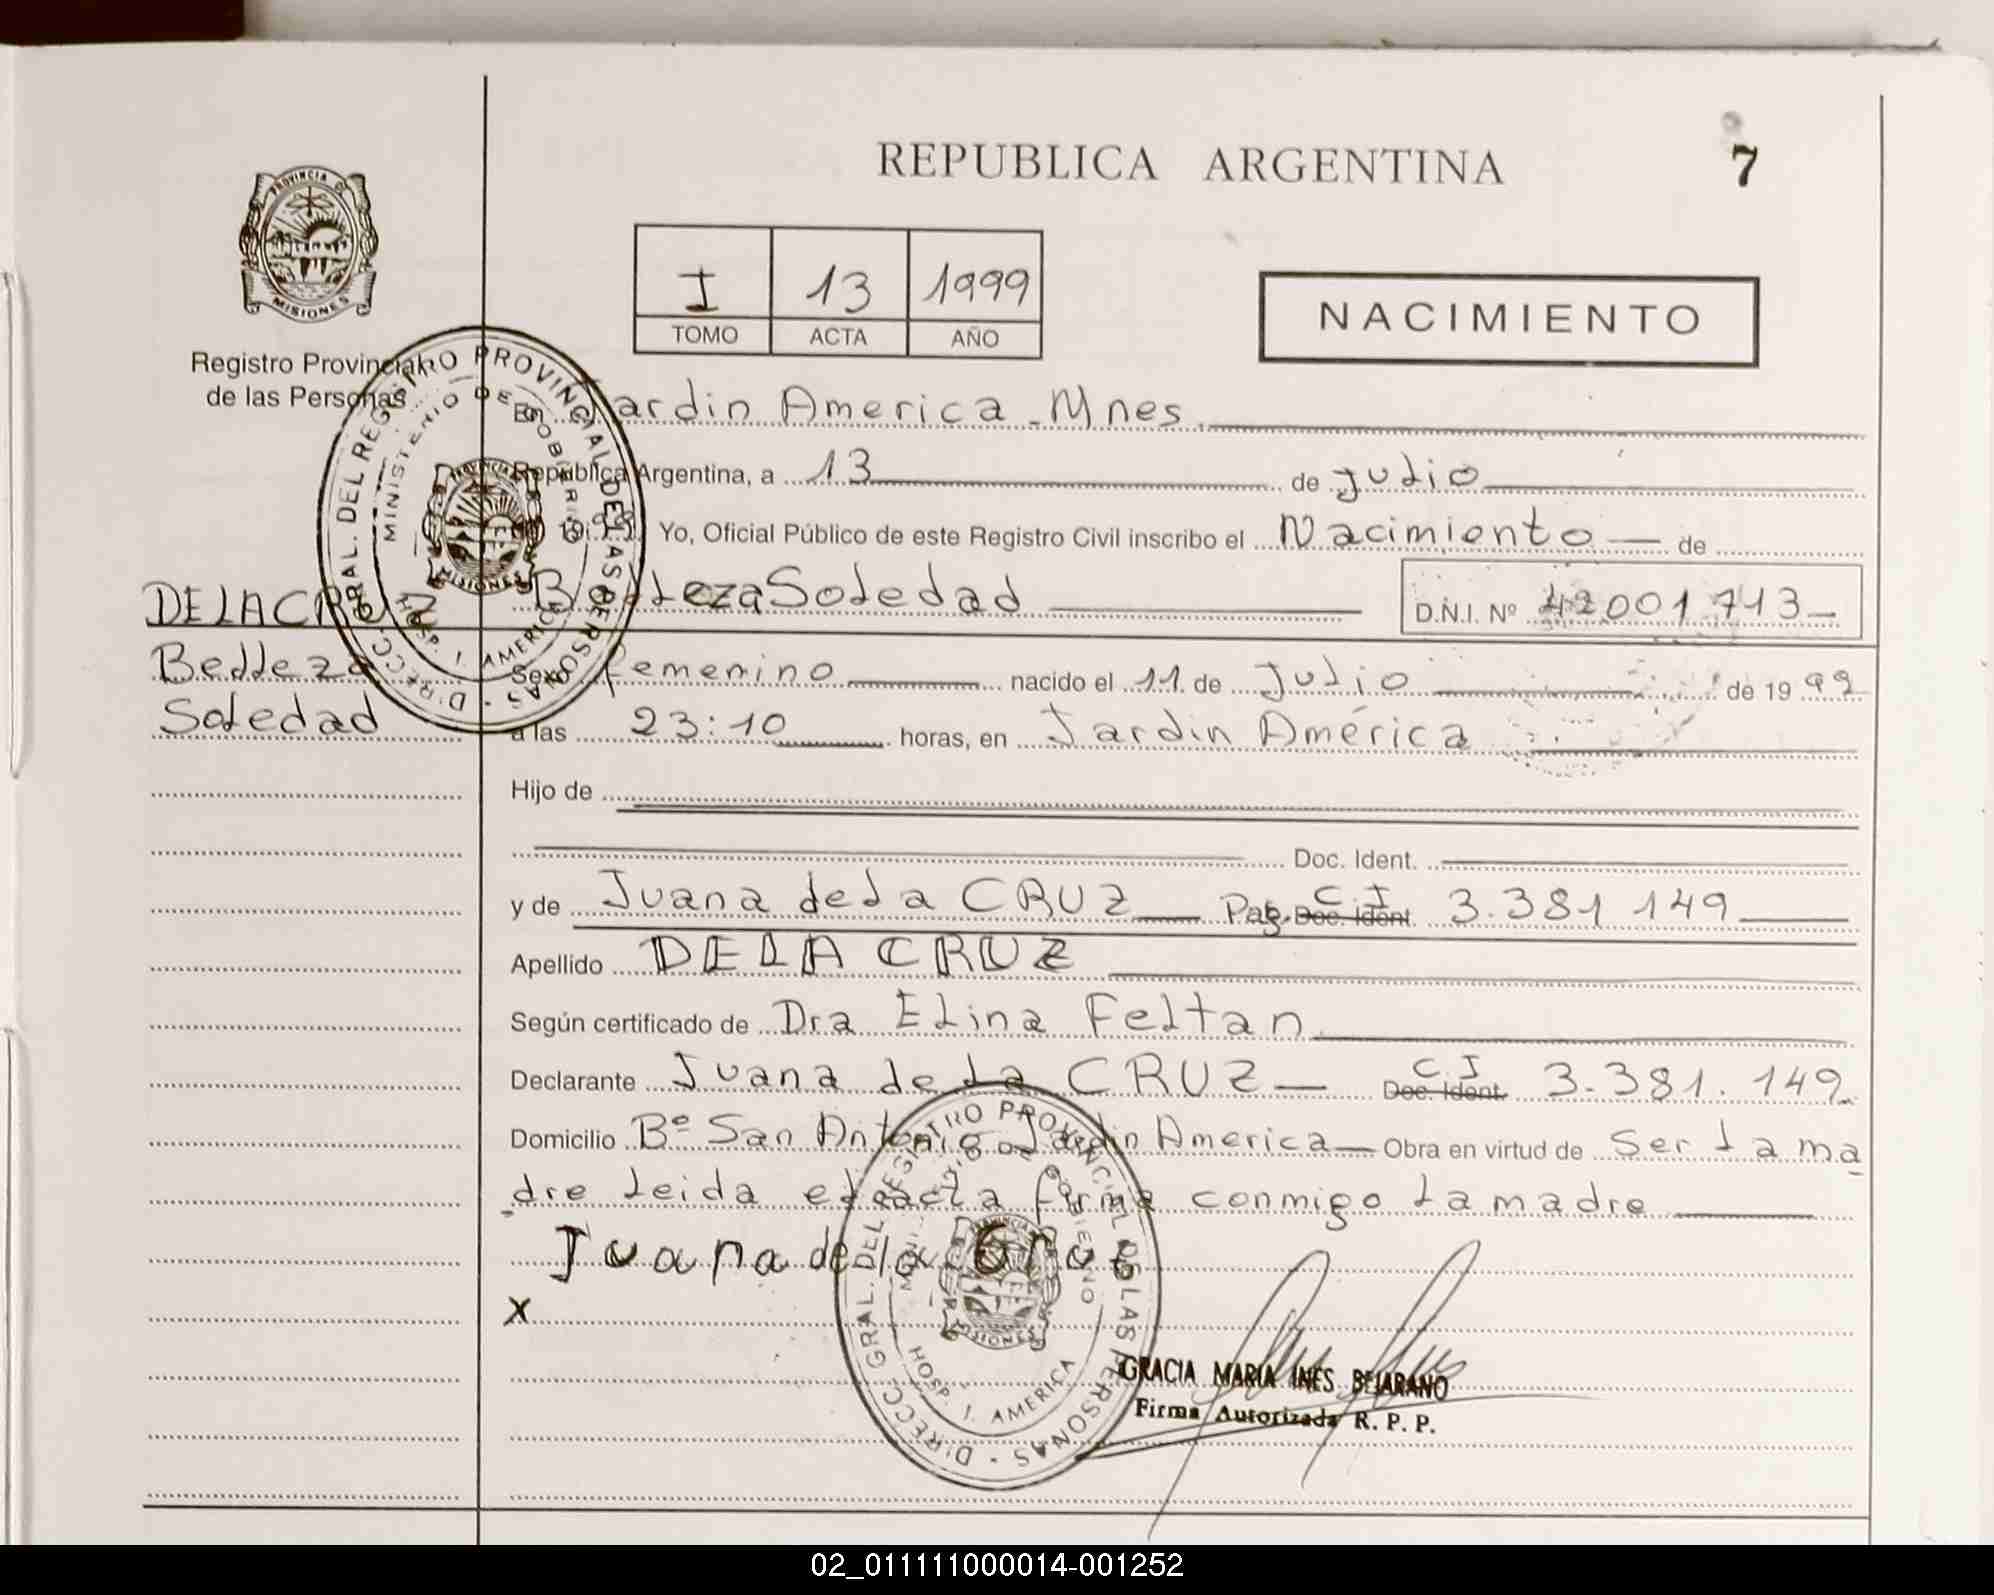 REPUBLICA ARGENTINA
7
PROVINCIA DE
MISIONES
Registro Provincial
de las Personas
I 13 1999
TOMO ACTA AÑO
NACIMIENTO
DIRECC. GRAL. DEL REGISTRO PROVINCIAL DE LAS PERSONAS
MINISTERIO DE GOBIERNO
HOSP. J. AMERICA
MISIONES
En Jardin America - Mnes
República Argentina, a 13 de Julio
19 Yo, Oficial Público de este Registro Civil inscribo el Nacimiento de
DE LA CRUZ
Belleza Soledad
D.N.I. Nº 42001713
Belleza
Soledad
Sexo femenino nacido el 11 de Julio de 19 99
a las 23:10 horas, en Jardin América
Hijo de
Doc. Ident.
y de Juana de la CRUZ Pag. C I Doc. Ident. 3.381 149
Apellido DE LA CRUZ
Según certificado de Dra Elina Feltan
Declarante Juana de la CRUZ C.I Doc. Ident. 3.381.149
Domicilio Bº San Antonio Jardin America Obra en virtud de Ser la ma
dre leida el acta firma conmigo la madre
Juana de la Cruz
x
DIRECC. GRAL. DEL REGISTRO PROVINCIAL DE LAS PERSONAS
MINISTERIO DE GOBIERNO
HOSP. J. AMERICA
MISIONES
GRACIA MARIA INES BEJARANO
Firma Autorizada R. P. P.
02_011111000014-001252